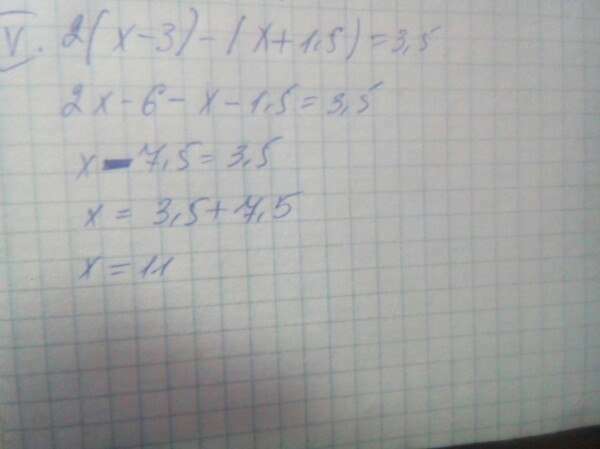 V. 2(x-3)-(x+1,5)=3,5
2x-6-x-1,5=3,5
x-7,5=3,5
x=3,5+7,5
x=11